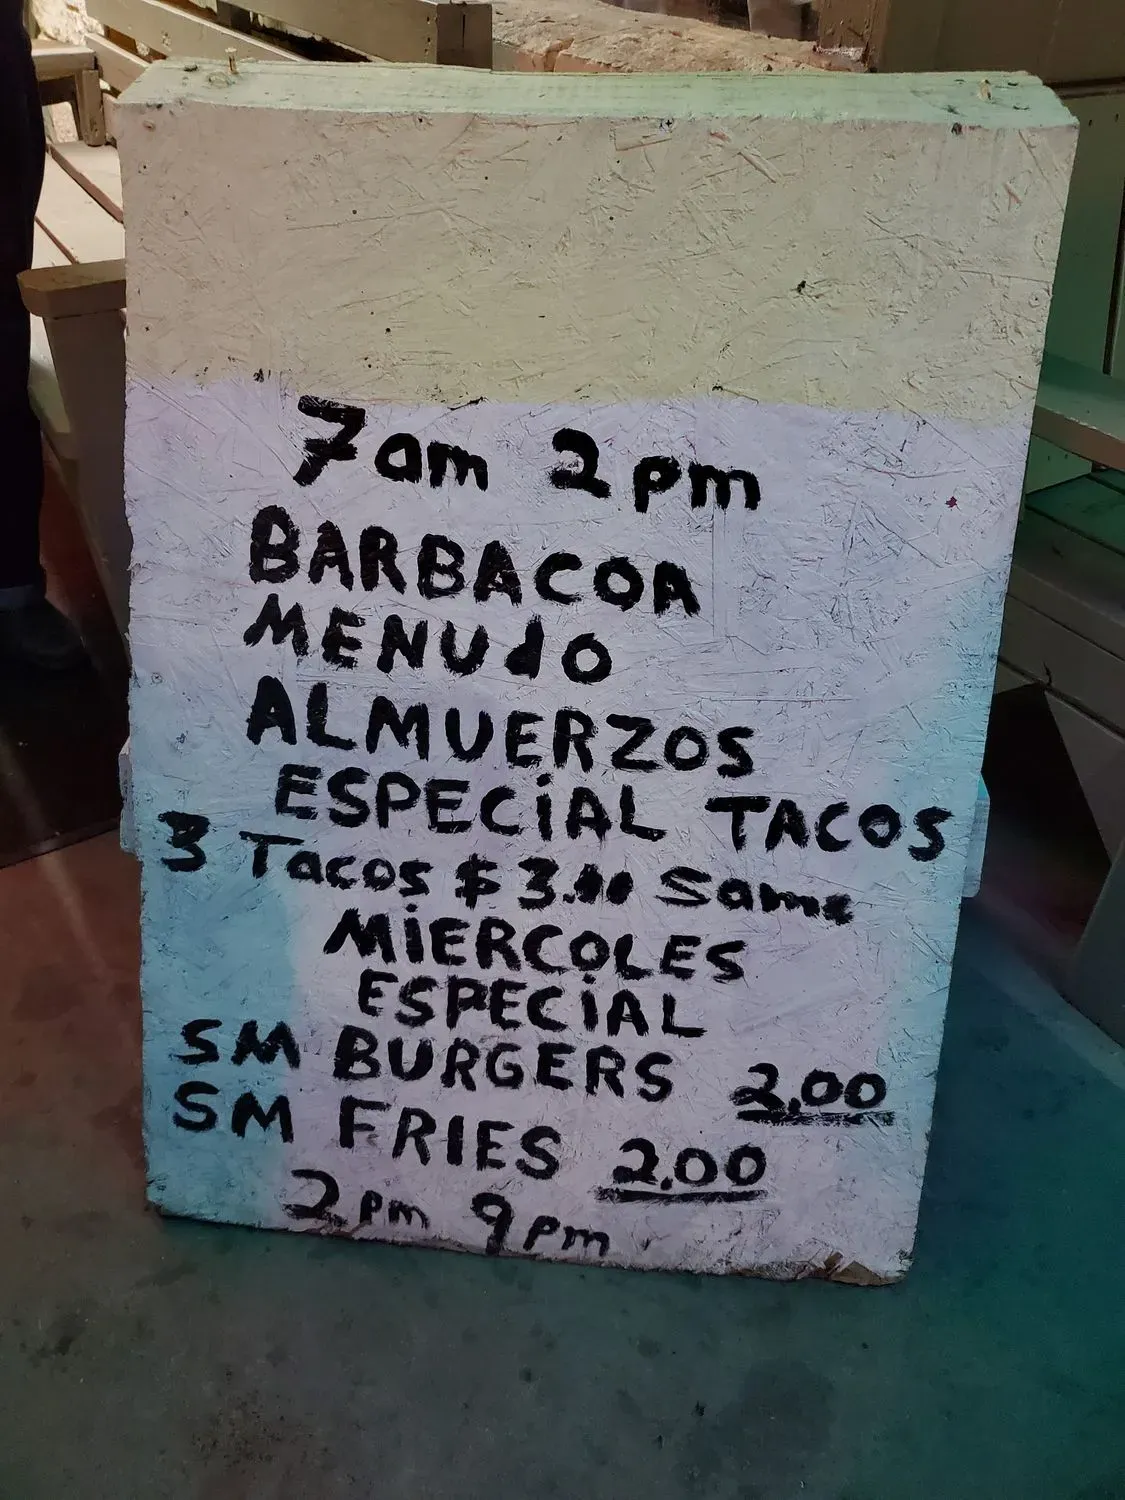 7am 2pm
BARBACOA
MENUdO
ALMUERZOS
ESPECiAL TACOS
3 Tacos $3.00 Same
MiERCOLES
ESPECiAL
SM BURGERS 2.00
SM FRIES 2.00
2pm 9pm